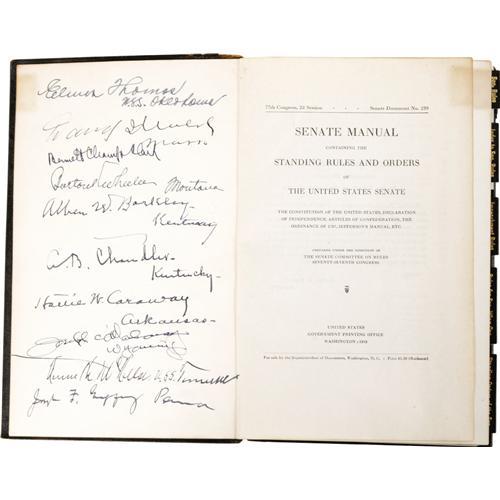 Elmer Thomas
U.S.S. Oklahoma
David I Walsh
Mass
Bennett Champ Clark
Burton K Wheeler Montana
Alben W. Barkley
Kentucky
A. B. Chandler
Kentucky
Hattie W. Caraway
Arkansas
Joseph C O'Mahoney
Wyoming
Kenneth McKellar U.S.S. Tennessee
Joseph F. Guffey Penna
77th Congress, 2d Session - - - Senate Document No. 239
SENATE MANUAL
CONTAINING THE
STANDING RULES AND ORDERS
OF
THE UNITED STATES SENATE
THE CONSTITUTION OF THE UNITED STATES, DECLARATION
OF INDEPENDENCE, ARTICLES OF CONFEDERATION, THE
ORDINANCE OF 1787, JEFFERSON'S MANUAL, ETC.
PREPARED UNDER THE DIRECTION OF
THE SENATE COMMITTEE ON RULES
SEVENTY-SEVENTH CONGRESS
UNITED STATES
GOVERNMENT PRINTING OFFICE
WASHINGTON :
For sale by the Superintendent of Documents, Washington, D. C. - Price